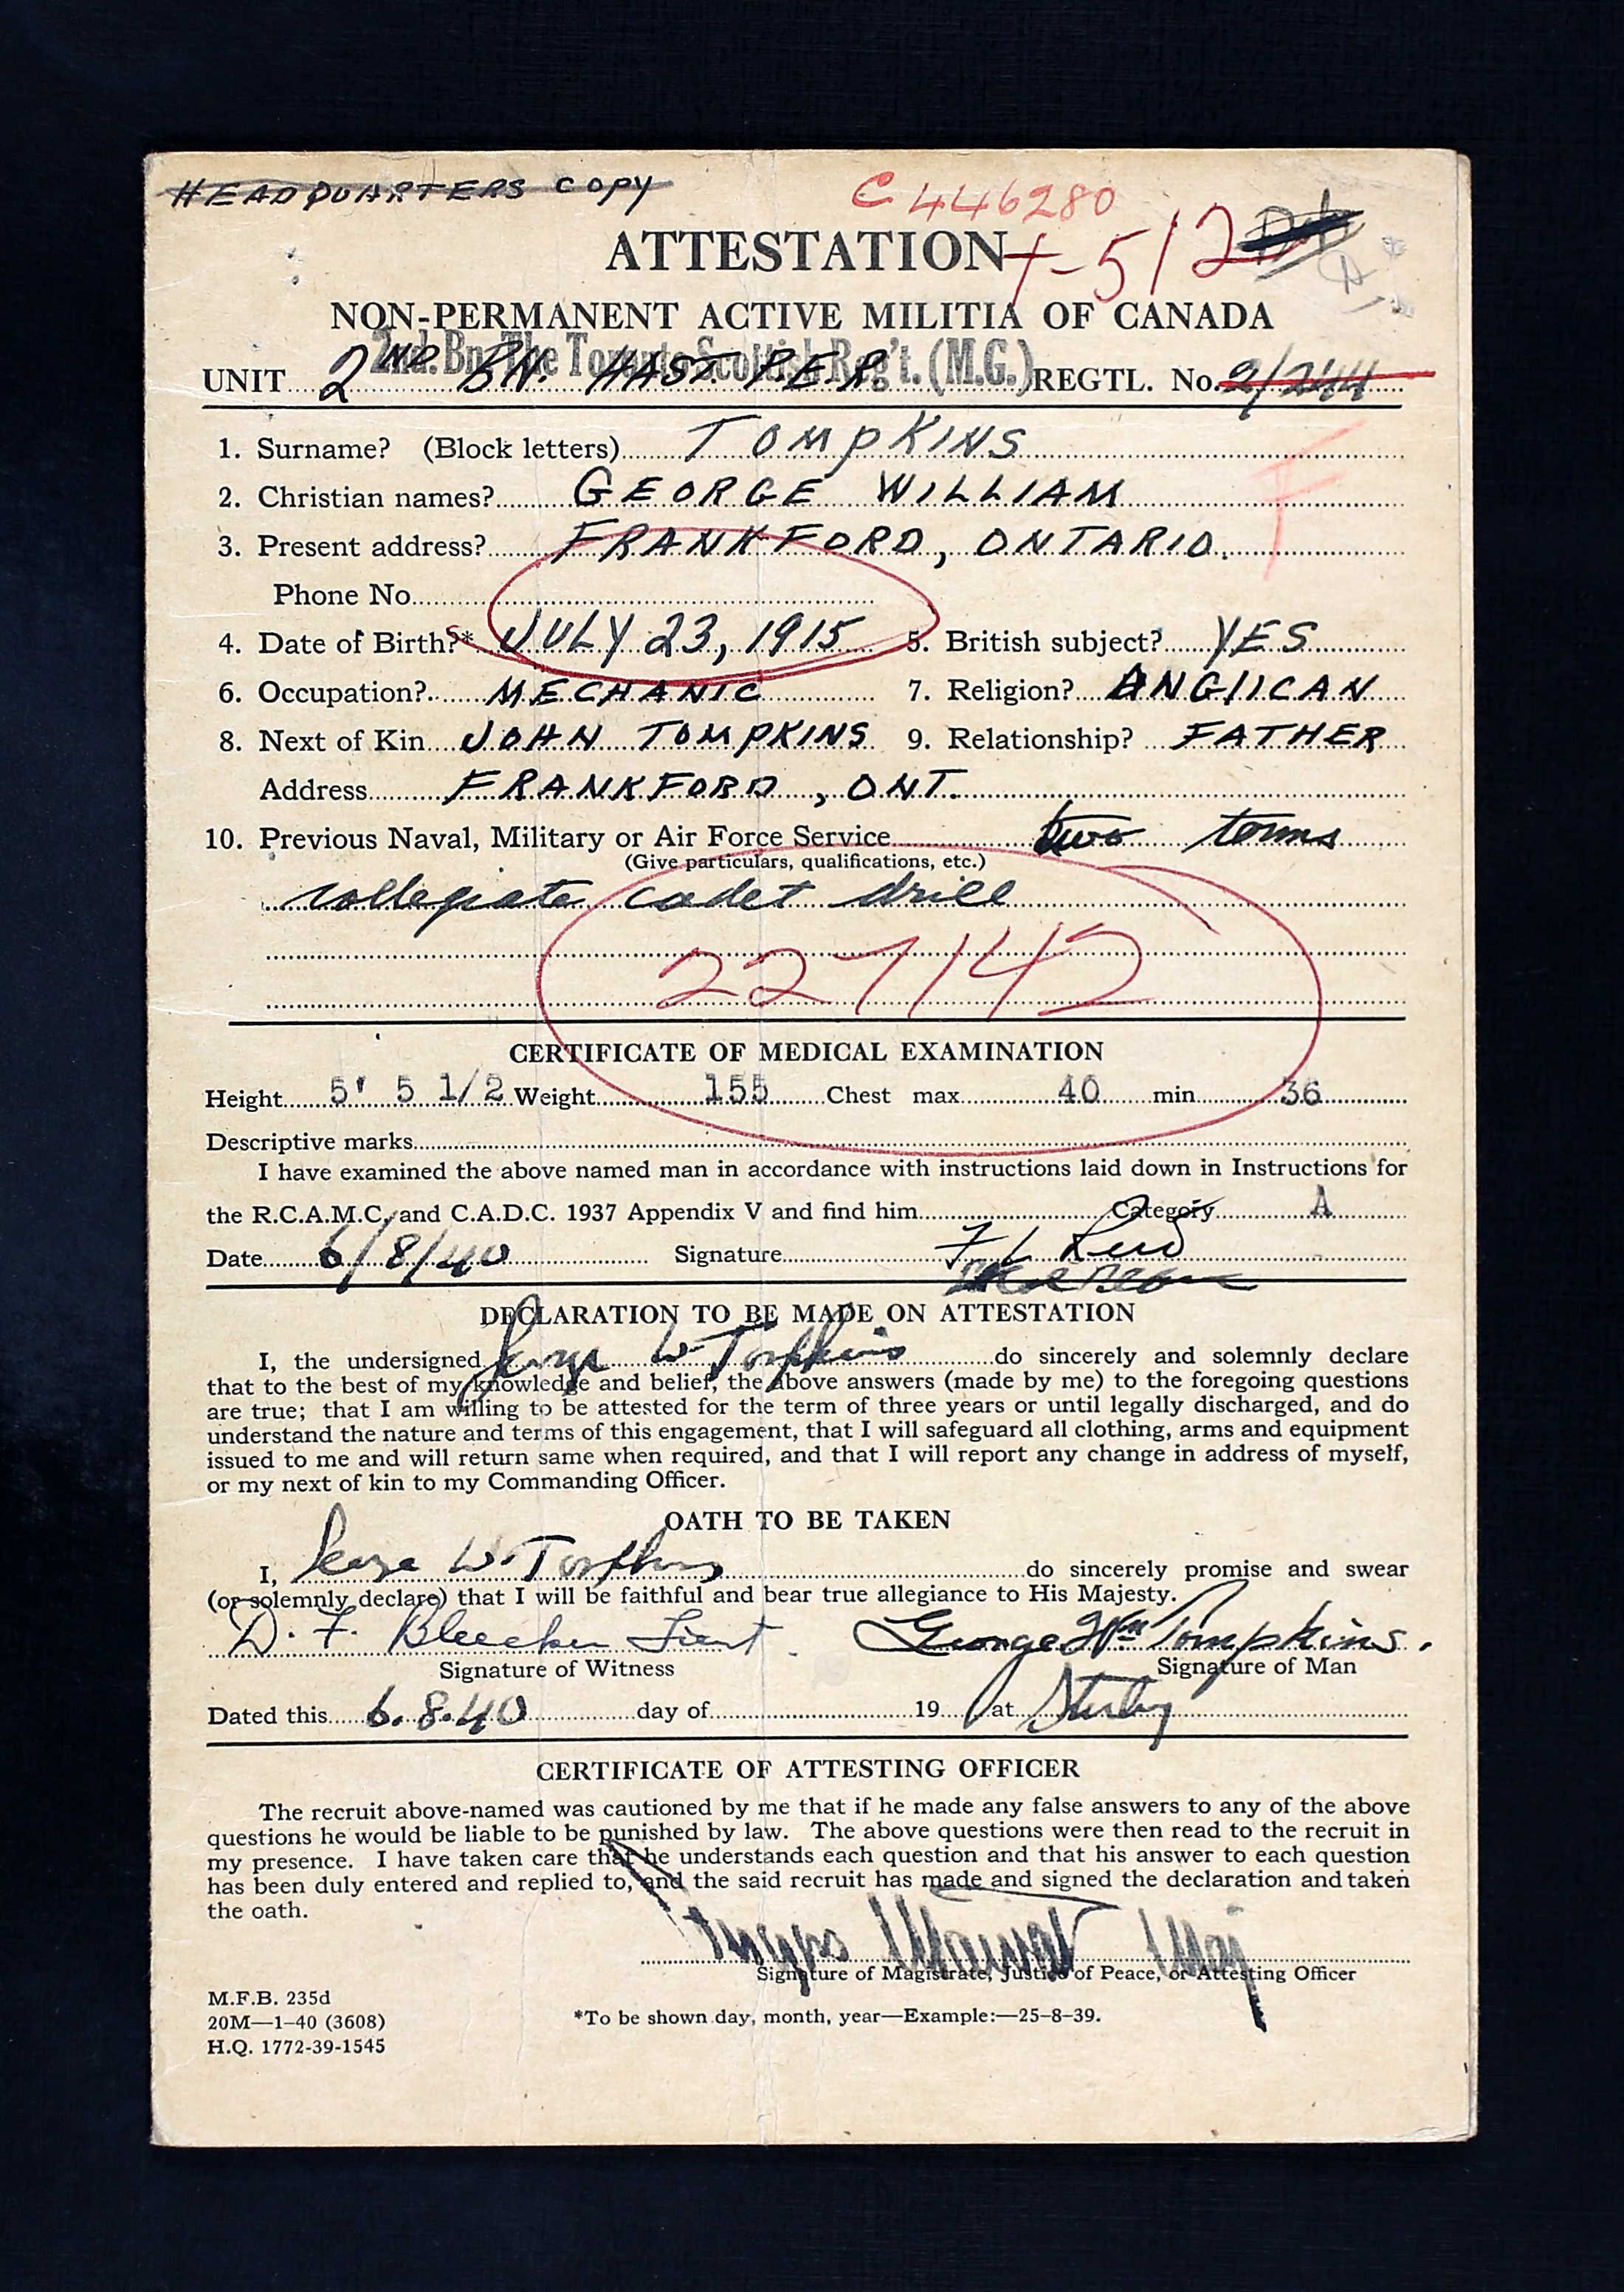 HEADQUARTERS COPY
C 446280
ATTESTATION
T-512
NON-PERMANENT ACTIVE MILITIA OF CANADA
2nd. Bn. The Toronto Scottish Reg't. (M.G.)
UNIT 2ND. BN. HAST. P.E.R. REGTL. No. 2/244
1. Surname? (Block letters) TOMPKINS
2. Christian names? GEORGE WILLIAM
F
3. Present address? FRANKFORD, ONTARIO.
Phone No.
4. Date of Birth?* JULY 23, 1915 5. British subject? YES
6. Occupation? MECHANIC 7. Religion? ANGLICAN
8. Next of Kin JOHN TOMPKINS 9. Relationship? FATHER
Address FRANKFORD, ONT.
10. Previous Naval, Military or Air Force Service two terms
(Give particulars, qualifications, etc.)
collegiate cadet drill
227142
CERTIFICATE OF MEDICAL EXAMINATION
Height 5' 5 1/2 Weight 155 Chest max. 40 min 36
Descriptive marks
I have examined the above named man in accordance with instructions laid down in Instructions for
the R.C.A.M.C. and C.A.D.C. 1937 Appendix V and find him Category A
Date 6/8/40 Signature F L Reid
DECLARATION TO BE MADE ON ATTESTATION
I, the undersigned George W Tompkins do sincerely and solemnly declare
that to the best of my knowledge and belief, the above answers (made by me) to the foregoing questions
are true; that I am willing to be attested for the term of three years or until legally discharged, and do
understand the nature and terms of this engagement, that I will safeguard all clothing, arms and equipment
issued to me and will return same when required, and that I will report any change in address of myself,
or my next of kin to my Commanding Officer.
OATH TO BE TAKEN
I, George W. Tompkins do sincerely promise and swear
(or solemnly declare) that I will be faithful and bear true allegiance to His Majesty.
D. F. Bleecker Lieut. George Wm Tompkins.
Signature of Witness Signature of Man
Dated this 6.8.40 day of 19 at
CERTIFICATE OF ATTESTING OFFICER
The recruit above-named was cautioned by me that if he made any false answers to any of the above
questions he would be liable to be punished by law. The above questions were then read to the recruit in
my presence. I have taken care that he understands each question and that his answer to each question
has been duly entered and replied to, and the said recruit has made and signed the declaration and taken
the oath.
Maj
Signature of Magistrate, Justice of Peace, or Attesting Officer
M.F.B. 235d
20M—1-40 (3608)
H.Q. 1772-39-1545
*To be shown day, month, year—Example:—25-8-39.